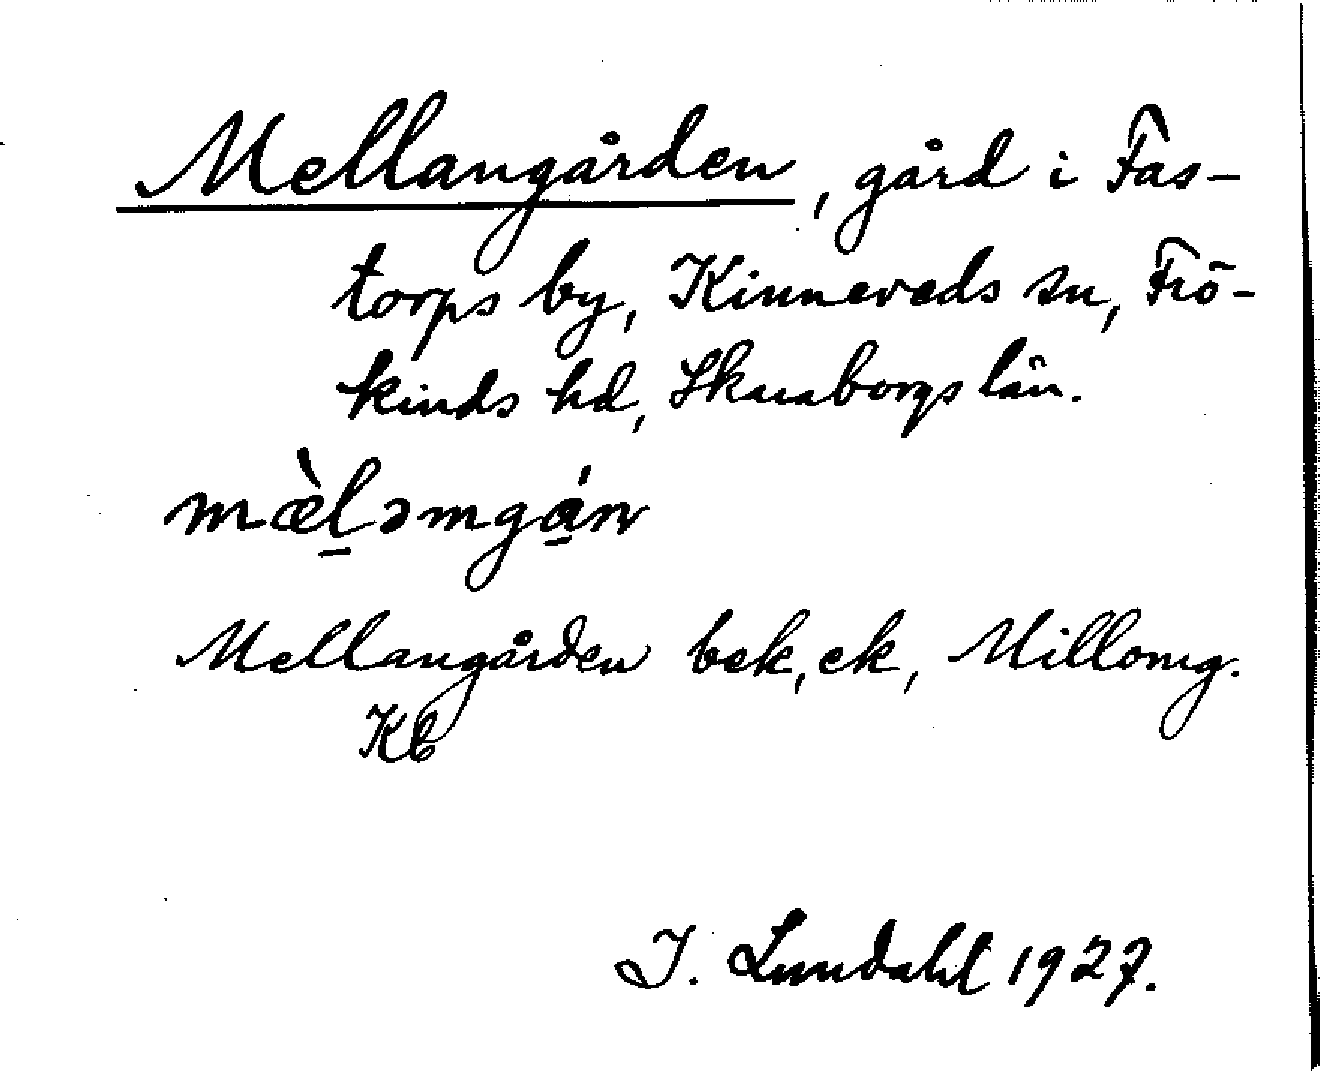 Mellangården, gård i Fas-
torps by, Kinneveds sn, Frö-
kinds hd, Skaraborgs län.
mæ̀l̠əmgá̠n
Mellangården bek, ek, Millomg.
Kb
I. Lundahl 1927.